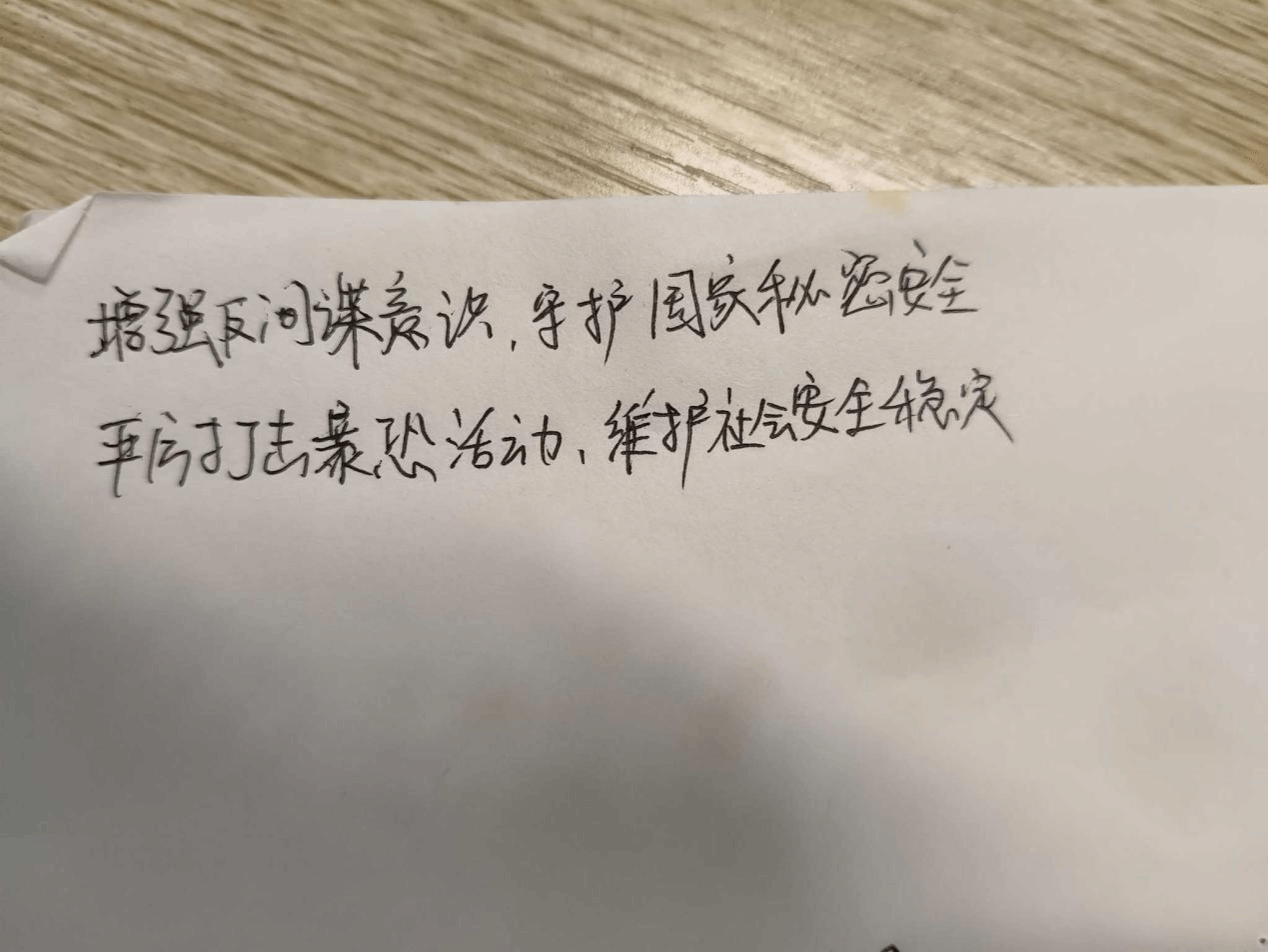 增强反间谍意识,守护国家秘密安全
严厉打击暴恐活动,维护社会安全稳定